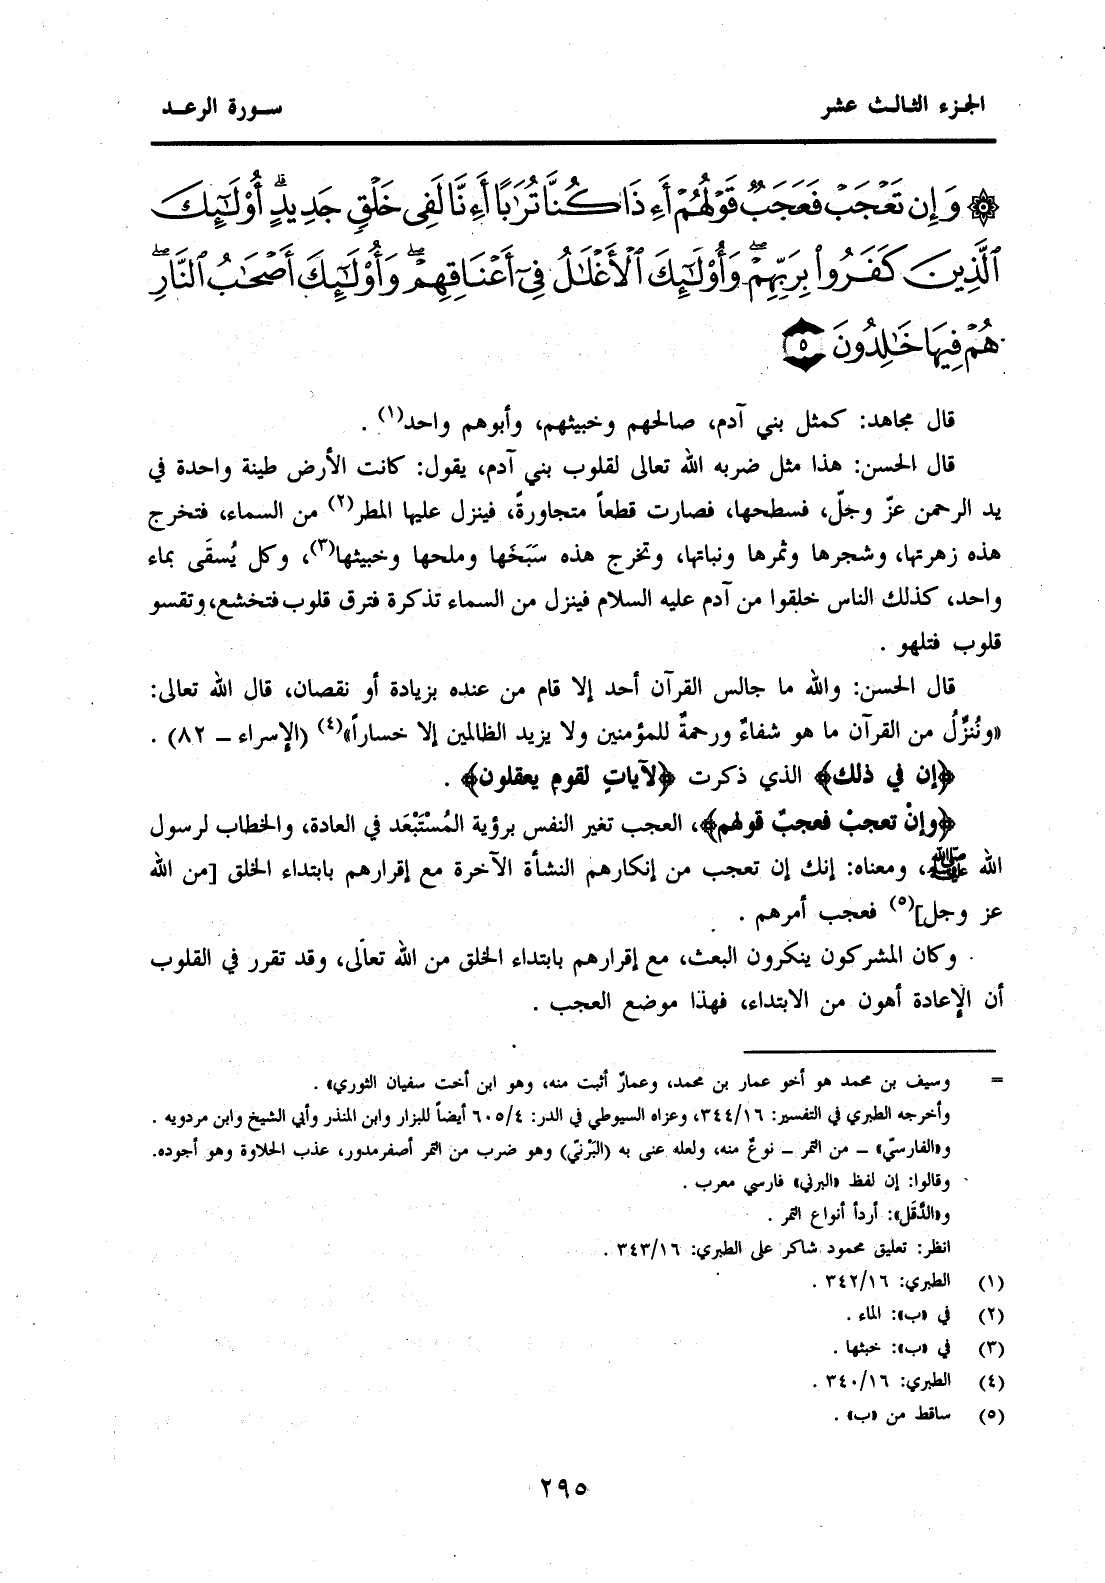 الجزء الثالث عشر
سورة الرعد
۞ وَإِن تَعۡجَبۡ فَعَجَبٞ قَوۡلُهُمۡ أَءِذَا كُنَّا تُرَٰبًا أَءِنَّا لَفِي خَلۡقٖ جَدِيدٍۗ أُوْلَٰٓئِكَ
ٱلَّذِينَ كَفَرُواْ بِرَبِّهِمۡۖ وَأُوْلَٰٓئِكَ ٱلۡأَغۡلَٰلُ فِيٓ أَعۡنَاقِهِمۡۖ وَأُوْلَٰٓئِكَ أَصۡحَٰبُ ٱلنَّارِۖ
هُمۡ فِيهَا خَٰلِدُونَ ٥
قال مجاهد: كمثل بني آدم، صالحهم وخبيثهم، وأبوهم واحد(١) .
قال الحسن: هذا مثل ضربه الله تعالى لقلوب بني آدم، يقول: كانت الأرض طينة واحدة في
يد الرحمن عزّ وجلّ، فسطحها، فصارت قطعاً متجاورةً، فينزل عليها المطر(٢) من السماء، فتخرج
هذه زهرتها، وشجرها وثمرها ونباتها، وتخرج هذه سَبَخَها وملحها وخبيثها(٣)، وكل يُسقَى بماء
واحد، كذلك الناس خلقوا من آدم عليه السلام فينزل من السماء تذكرة فترق قلوب فتخشع، وتقسو
قلوب فتلهو .
قال الحسن: والله ما جالس القرآن أحد إلا قام من عنده بزيادة أو نقصان، قال الله تعالى:
«ونُنزِّلُ من القرآن ما هو شفاءٌ ورحمةٌ للمؤمنين ولا يزيد الظالمين إلا خساراً»(٤) (الإسراء – ٨٢) .
﴿إن في ذلك﴾ الذي ذكرت ﴿لآياتٍ لقومٍ يعقلون﴾ .
﴿وإنْ تعجبْ فعجبٌ قولهم﴾، العجب تغير النفس برؤية المُسْتَبْعَد في العادة، والخطاب لرسول
الله ﷺ، ومعناه: إنك إن تعجب من إنكارهم النشأة الآخرة مع إقرارهم بابتداء الخلق [من الله
عز وجل](٥) فعجب أمرهم .
وكان المشركون ينكرون البعث، مع إقرارهم بابتداء الخلق من الله تعالى، وقد تقرر في القلوب
أن الإعادة أهون من الابتداء، فهذا موضع العجب .
= وسيف بن محمد هو أخو عمار بن محمد، وعمارٌ أثبت منه، وهو ابن أخت سفيان الثوري» .
وأخرجه الطبري في التفسير: ٣٤٤/١٦، وعزاه السيوطي في الدر: ٦٠٥/٤ أيضاً للبزار وابن المنذر وأبي الشيخ وابن مردويه .
و«الفارسيّ» – من التمر – نوعٌ منه، ولعله عنى به (البَرْنيّ) وهو ضرب من التمر أصفرمدور، عذب الحلاوة وهو أجوده.
وقالوا: إن لفظ «البرني» فارسي معرب .
و«الدَّقَل»: أردأ أنواع التمر .
انظر: تعليق محمود شاكر على الطبري: ٣٤٣/١٦ .
(١) الطبري: ٣٤٢/١٦ .
(٢) في «ب»: الماء .
(٣) في «ب»: خبثها .
(٤) الطبري: ٣٤٠/١٦ .
(٥) ساقط من «ب» .
٢٩٥